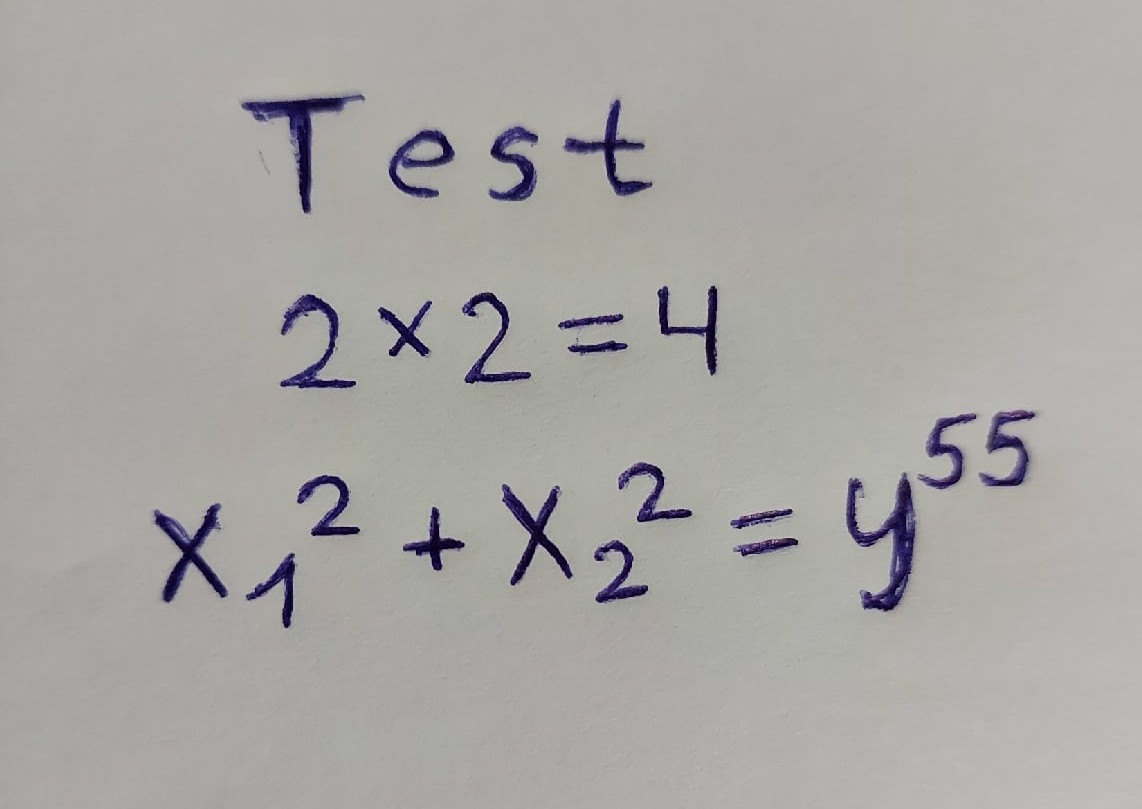 Test
2 × 2 = 4
x₁² + x₂² = y⁵⁵